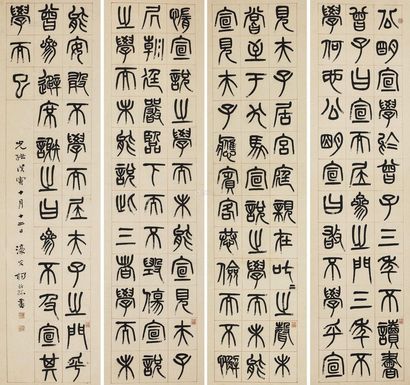 公明宣學於曾子三年不讀書
曾子曰宣而居參之門三年不
學何也公明宣曰敢不學乎宣
見夫子居宮庭親在叱〻之聲未
嘗至于犬馬宣說之學而未能
宣見夫子應賓客恭儉而不懈
惰宣說之學而未能宣見夫子
居朝廷嚴臨下而不毀傷宣說
之學而未能說此三者學而未
能安敢不學而居夫子之門乎
曾參避席謝之曰參不及宣其
學而已
光緒戊寅十月十日 濠叟楊沂孫書